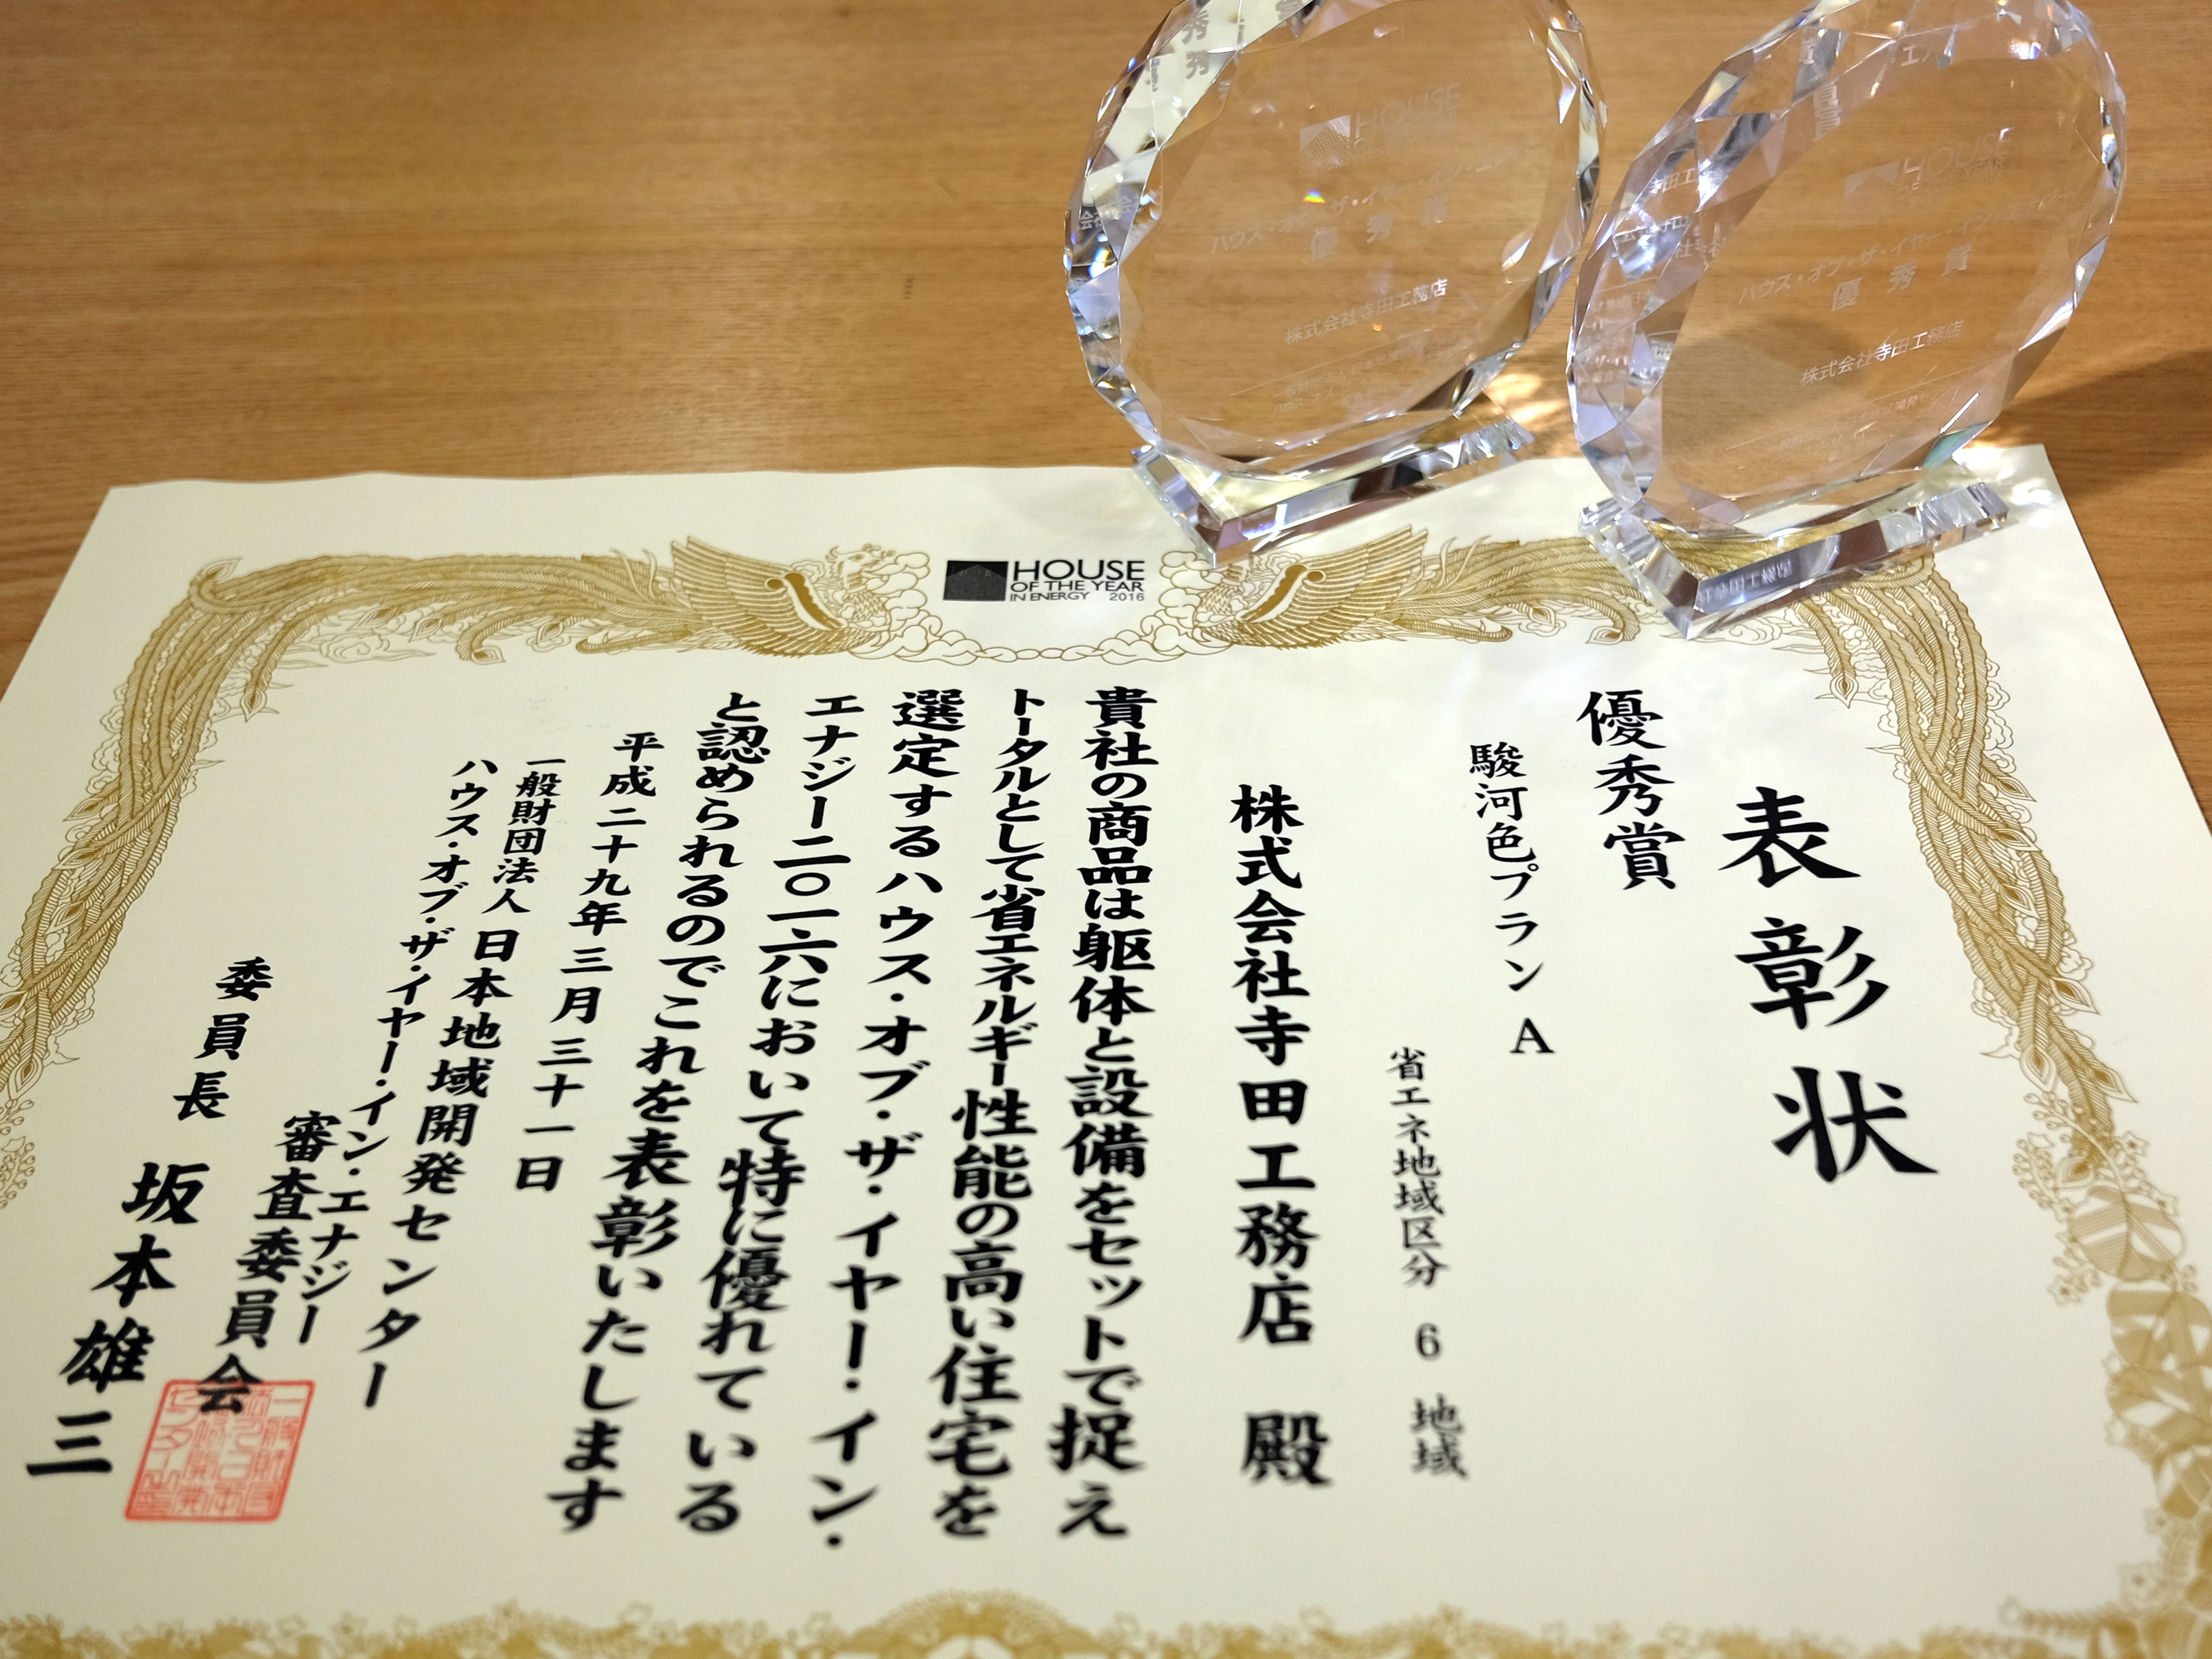 HOUSE
OF THE YEAR
IN ENERGY 2016
表彰状
優秀賞
駿河色プラン A
省エネ地域区分 6 地域
株式会社寺田工務店 殿
貴社の商品は躯体と設備をセットで捉え
トータルとして省エネルギー性能の高い住宅を
選定するハウス・オブ・ザ・イヤー・イン・
エナジー二〇一六において特に優れている
と認められるのでこれを表彰いたします
平成二十九年三月三十一日
一般財団法人 日本地域開発センター
ハウス・オブ・ザ・イヤー・イン・エナジー
審査委員会
委員長 坂本雄三
HOUSE
優秀賞
株式会社寺田工務店
HOUSE
OF THE YEAR
ハウス・オブ・ザ・イヤー・イン
優秀賞
株式会社寺田工務店